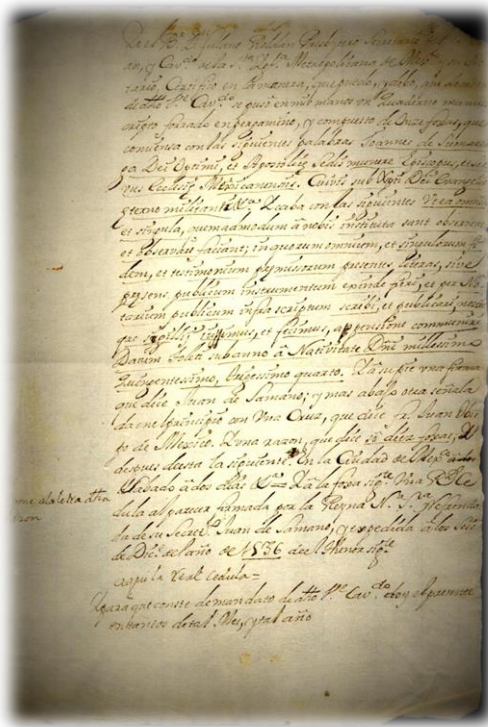 Yo el B.r D.n Julano Roldan Presbytero Secretario
y Cav.do de la S.ta Igl.a Metropolitana de Mex.co
tario, Certifico en la manera, que puedo, y debo, que
de dho V.e Cav.do se puso en mis manos un Quaderno manu
cripto forrado en pergamino, y compuesto de Onze foxas, que
comienza con las siguientes palabras Joannes de Zumarra
ga Dei Optimi, et Apostolicæ Sedis munere Episcopus, et
Ecclesiæ Mexicanensis. Cunctis sub Dei Evangelio
æterno militant. Acaba con las siguientes Ut ea omnia
et singula, quemadmodum à nobis instituta sunt observent
et observari faciant; in quorum omnium, et singulorum fi
dem, et testimonium præmissorum presentes literas, sive
præsens publicum instrumentum exinde fieri, et per No
tarium publicum infra scriptum scribi, et publicari,
que sigilli et fecimus, appensione communiri
Datum Toleti sub anno à Nativitate Dñi millesimo
Quingentessimo, trigessimo quarto. Y à su pie una firma
que dice Juan de Samano; y mas abajo otra señala
da en el principio con Una Cruz, que dice Fr. Juan Obis
to de Mexico. Y una razon, que dice diez foxas; Y
despues de esta la siguiente. En la Ciudad de Mex.co
Sabado à dos dias Y à la foxa sig.te Una R.l Ce
dula al parecer firmada por la Reyna N.a S.ra refrenda
da de su Secret.o Juan de Samano; y expedida à los
de Dic.e del año de 1536 de el thenor sig.te
a la letra dha
Aqui la Real Cedula =
Y para que conste de mandato de dho V.e Cav.do doy el presente
en tantos de tal Mes, y tal año